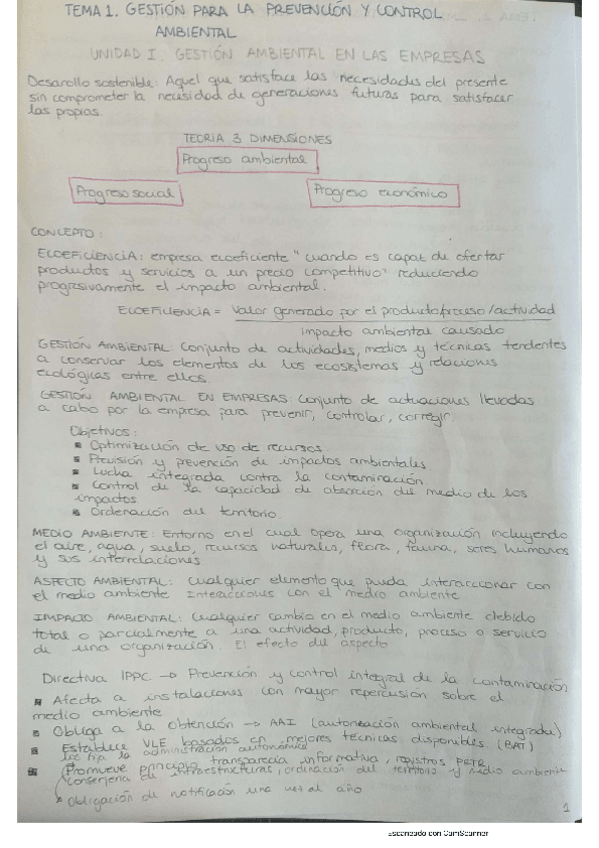 TEMA 1. GESTIÓN PARA LA PREVENCIÓN Y CONTROL
AMBIENTAL
UNIDAD I. GESTIÓN AMBIENTAL EN LAS EMPRESAS
Desarollo sostenible: Aquel que satisface las necesidades del presente
sin comprometer la necesidad de generaciones futuras para satisfacer
las propias.
TEORIA 3 DIMENSIONES
Progreso ambiental
Progreso social
Progreso económico
CONCEPTO:
ECOEFICIENCIA: empresa ecoeficiente "cuando es capaz de ofertar
productos y servicios a un precio competitivo" reduciendo
progresivamente el impacto ambiental.
ECOEFICIENCIA = Valor generado por el producto/proceso/actividad
impacto ambiental causado
GESTIÓN AMBIENTAL: Conjunto de actividades, medios y técnicas tendentes
a conservar los elementos de los ecosistemas y relaciones
ecológicas entre ellos.
GESTIÓN AMBIENTAL EN EMPRESAS: Conjunto de actuaciones llevadas
a cabo por la empresa para prevenir, controlar, corregir.
Objetivos:
Optimización de uso de recursos.
Previsión y prevención de impactos ambientales
Lucha integrada contra la contaminación
Control de la capacidad de absorción del medio de los
impactos
Ordenación del territorio.
MEDIO AMBIENTE: Entorno en el cual opera una organización incluyendo
el aire, agua, suelo, recursos naturales, flora, fauna, seres humanos
y sus interrelaciones
ASPECTO AMBIENTAL: Cualquier elemento que pueda interaccionar con
el medio ambiente Interacciones con el medio ambiente
IMPACTO AMBIENTAL: Cualquier cambio en el medio ambiente debido
total o parcialmente a una actividad, producto, proceso o servicio
de una organización. El efecto del aspecto
Directiva IPPC → Prevención y control integral de la contaminación
Afecta a instalaciones con mayor repercusión sobre el
medio ambiente
Obliga a la obtención → AAI (autorización ambiental integrada)
Establece VLE basados en mejores técnicas disponibles (BAT)
la administración autonómica
Promueve principio transparencia informativa, registros PRTR
Consejeria de infraestructuras, ordinación del territorio y medio ambiente
Obligación de notificación una vez al año
1
Escaneado con CamScanner